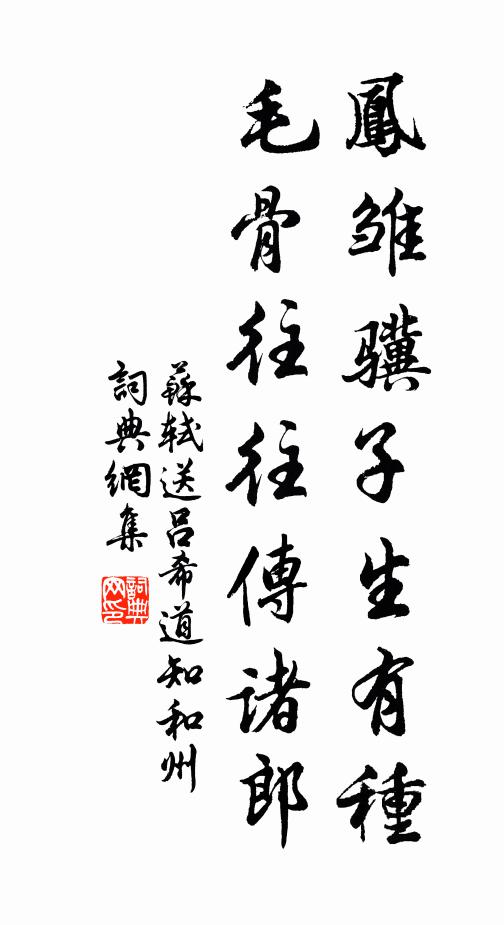 鳳雛驥子生有種
毛骨往往傳諸郎
蘇軾送呂希道知和州
詞典網集
詞典网印